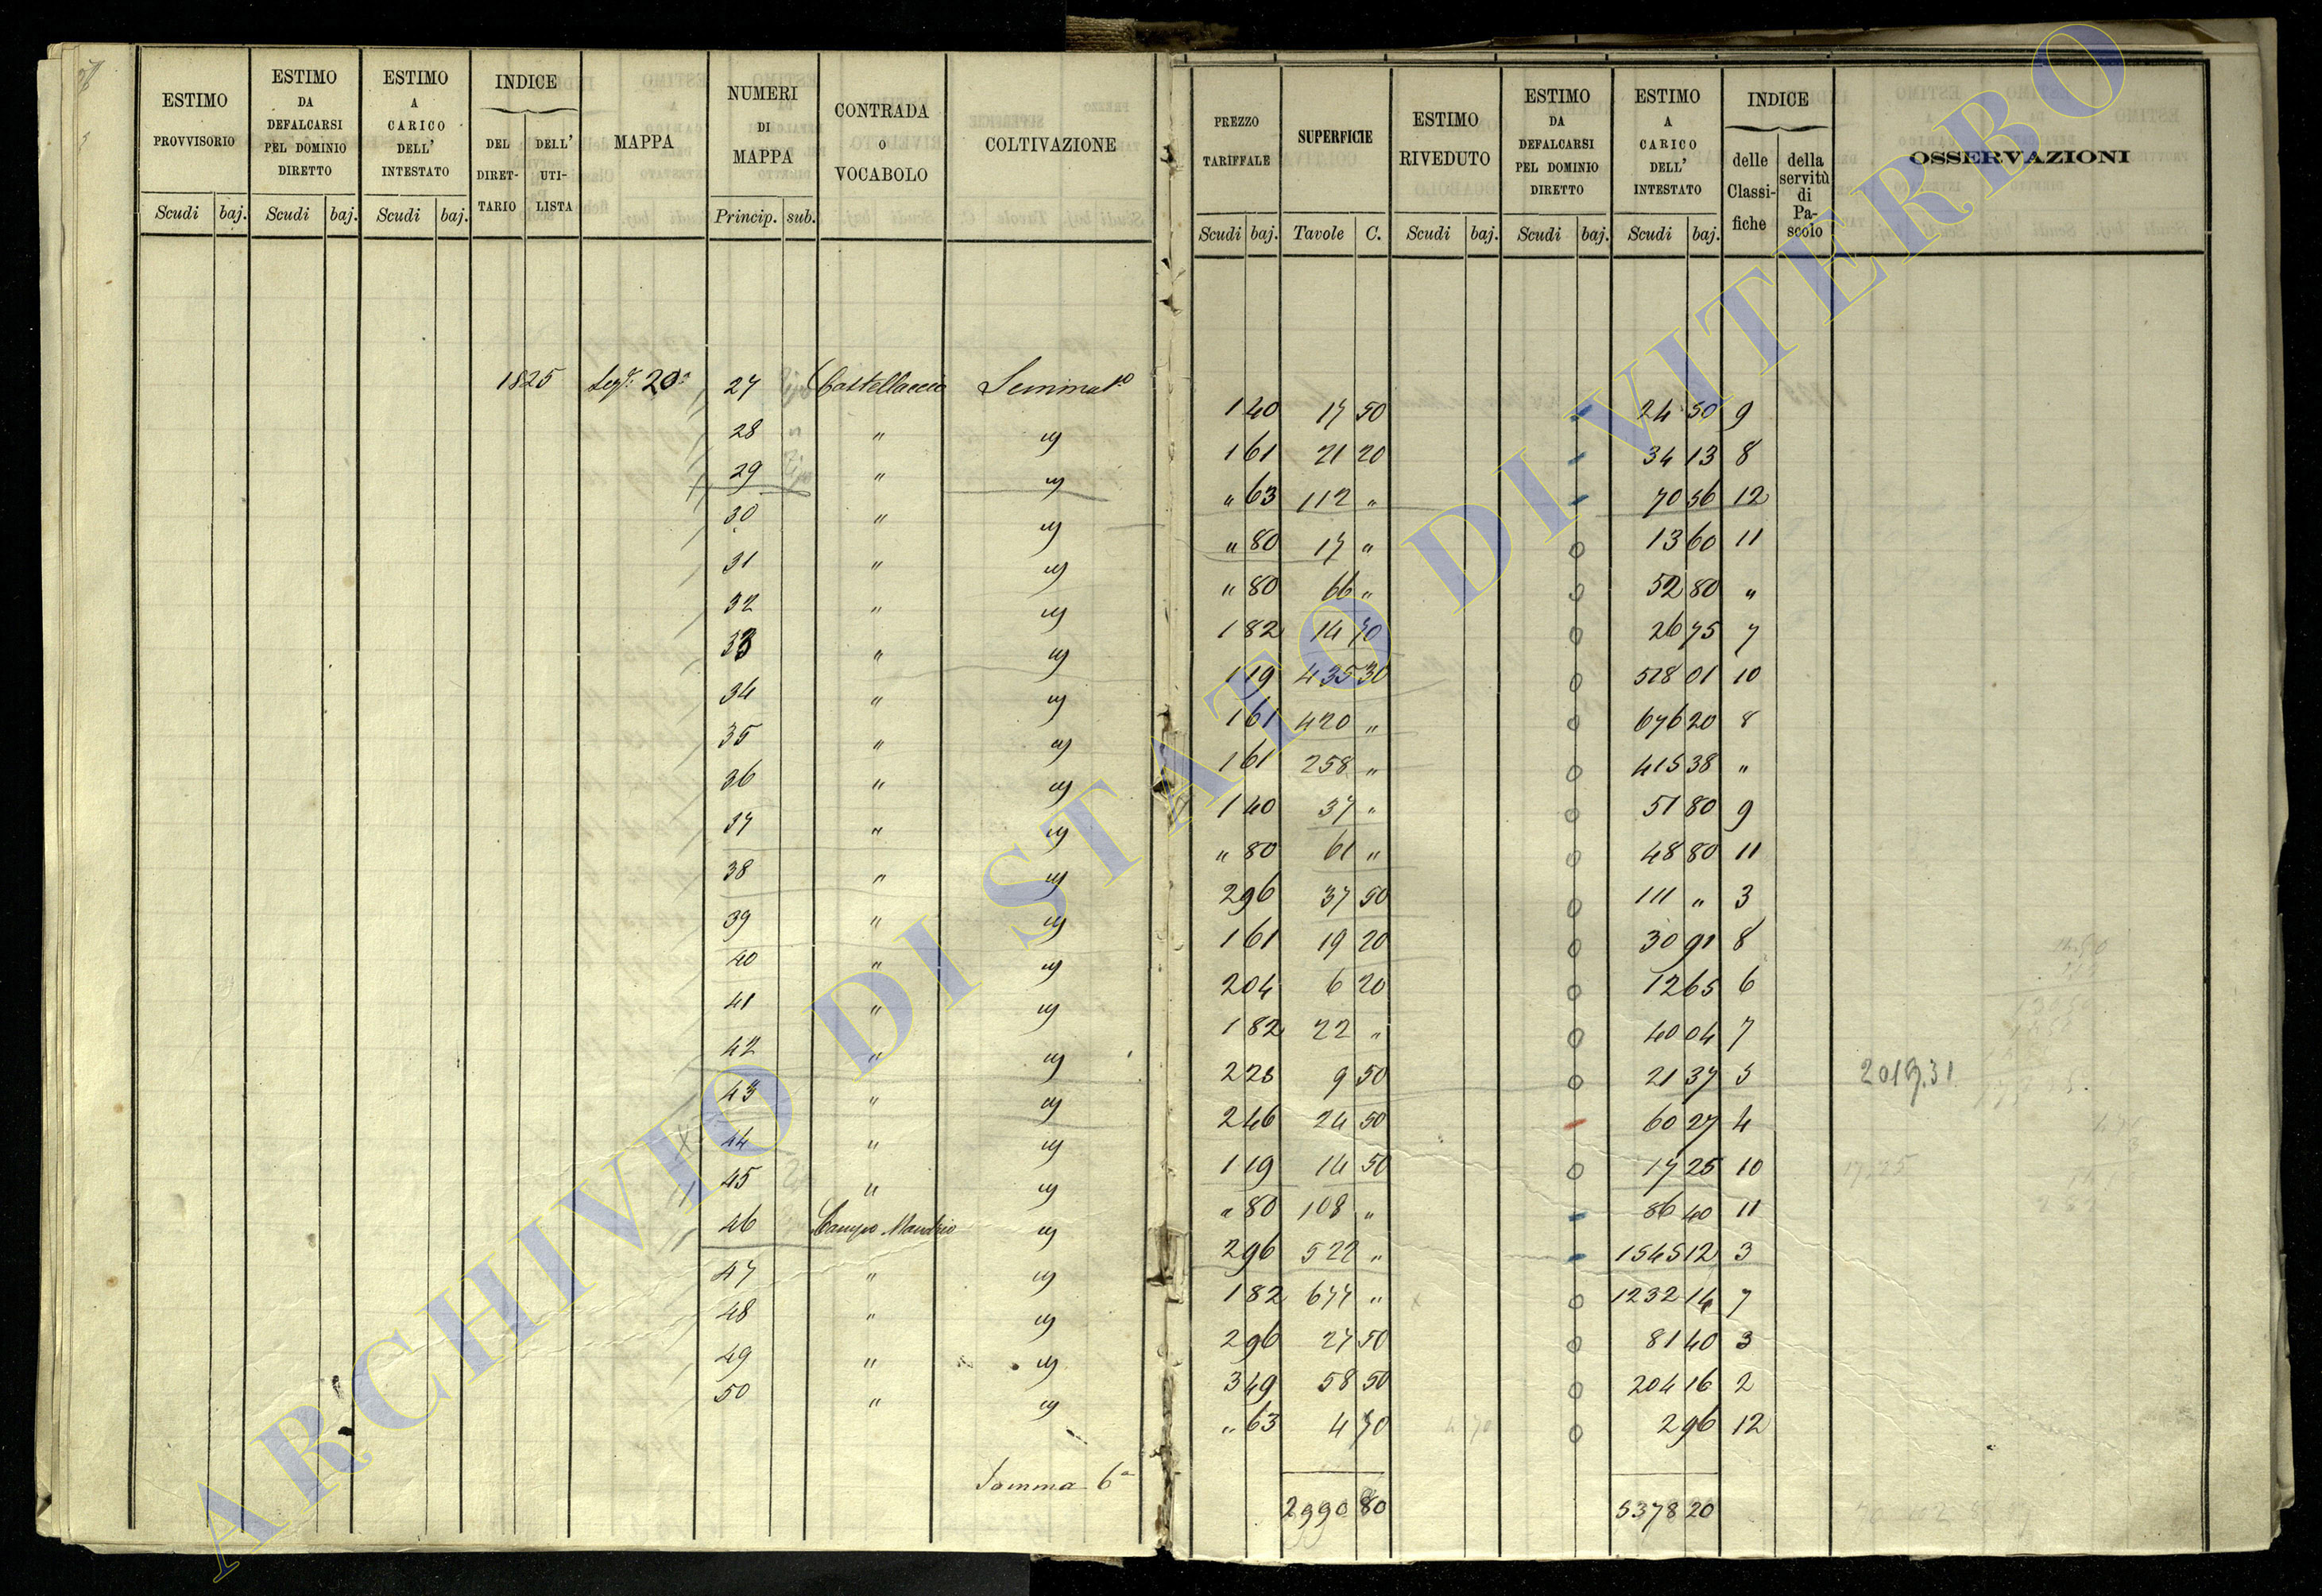 ESTIMO PROVVISORIO | ESTIMO DA DEFALCARSI PEL DOMINIO DIRETTO | ESTIMO A CARICO DELL' INTESTATO | INDICE | MAPPA | NUMERI DI MAPPA | CONTRADA O VOCABOLO | COLTIVAZIONE | PREZZO TARIFFALE | SUPERFICIE | ESTIMO RIVEDUTO | ESTIMO DA DEFALCARSI PEL DOMINIO DIRETTO | ESTIMO A CARICO DELL' INTESTATO | INDICE | OSSERVAZIONI
DEL DIRET-TARIO | DELL' UTI-LISTA | delle Classi-fiche | della servitù di Pa-scolo
Scudi | baj. | Scudi | baj. | Scudi | baj. | Princip. | sub. | Scudi | baj. | Tavole | C. | Scudi | baj. | Scudi | baj. | Scudi | baj.
1825 | Sez.e 20a | 27 | Castellaccio | Seminato | 1 40 | 17 50 | - | 24 50 | 9
28 | " | " | 1 61 | 21 20 | - | 34 13 | 8
29 | " | " | " 63 | 112 " | - | 70 56 | 12
30 | " | " | " 80 | 17 " | 0 | 13 60 | 11
31 | " | " | " 80 | 66 " | 0 | 52 80 | "
32 | " | " | 1 82 | 14 70 | 0 | 26 75 | 7
33 | " | " | 1 19 | 435 30 | 0 | 518 01 | 10
34 | " | " | 1 61 | 420 " | 0 | 676 20 | 8
35 | " | " | 1 61 | 258 " | 0 | 415 38 | "
36 | " | " | 1 40 | 37 " | 0 | 51 80 | 9
37 | " | " | " 80 | 61 " | 0 | 48 80 | 11
38 | " | " | 2 96 | 37 50 | 0 | 111 " | 3
39 | " | " | 1 61 | 19 20 | 0 | 30 91 | 8
40 | " | " | 2 04 | 6 20 | 0 | 12 65 | 6
41 | " | " | 1 82 | 22 " | 0 | 40 04 | 7
42 | " | " | 2 25 | 9 50 | 0 | 21 37 | 5
43 | " | " | 2 46 | 24 50 | - | 60 27 | 4
44 | " | " | 1 19 | 14 50 | 0 | 17 25 | 10 | 17.25
45 | " | " | " 80 | 108 " | - | 86 40 | 11
46 | Campo Mandrio | " | 2 96 | 522 " | - | 1545 12 | 3
47 | " | " | 1 82 | 677 " | 0 | 1232 14 | 7
48 | " | " | 2 96 | 27 50 | 0 | 81 40 | 3
49 | " | " | 3 49 | 58 50 | 0 | 204 16 | 2
50 | " | " | " 63 | 4 70 | 0 | 2 96 | 12
Somma 6a | 2990 80 | 5378 20
ARCHIVIO DI STATO DI VITERBO